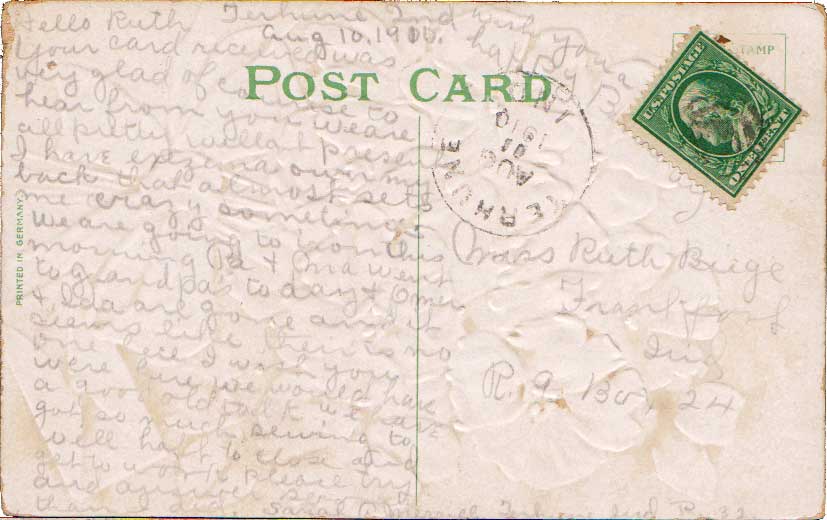 Hello Ruth Terhune Ind
Aug 10. 1910.
wish you a
happy B
Your card received was
very glad of course to
hear from you we are
all pretty well at present
I have
back that almost sets
me crazy sometimes
We are going to iron this
morning Pa & Ma went
to grandpas to day & Omer
& Ida are gone and it
seems like their is no
one here I wish you
were here we would have
a good old talk we have
got so much sewing to
well haft to close and
get to work please try
and answer
Sarah Terhune Ind R 32
POST CARD
STAMP
U.S. POSTAGE
ONE CENT
TERHUNE
AUG
10
1910
IND
PRINTED IN GERMANY
Miss Ruth Buge
Frankfort
Ind
R. 9. Box 24